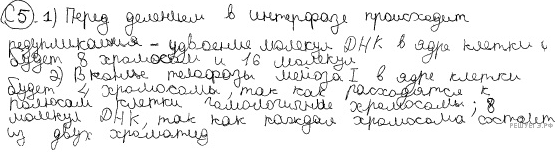 С5. 1) Перед делением в интерфазе происходит
редупликация – удвоение молекул ДНК в ядре клетки и
будет 8 хромосом и 16 молекул
2) В конце телофазы мейоза I в ядре клетки
будет 4 хромосомы, так как расходятся к
полюсам клетки гомологичные хромосомы; 8
молекул ДНК, так как каждая хромосома состоит
из двух хроматид
РЕШУЕГЭ.РФ